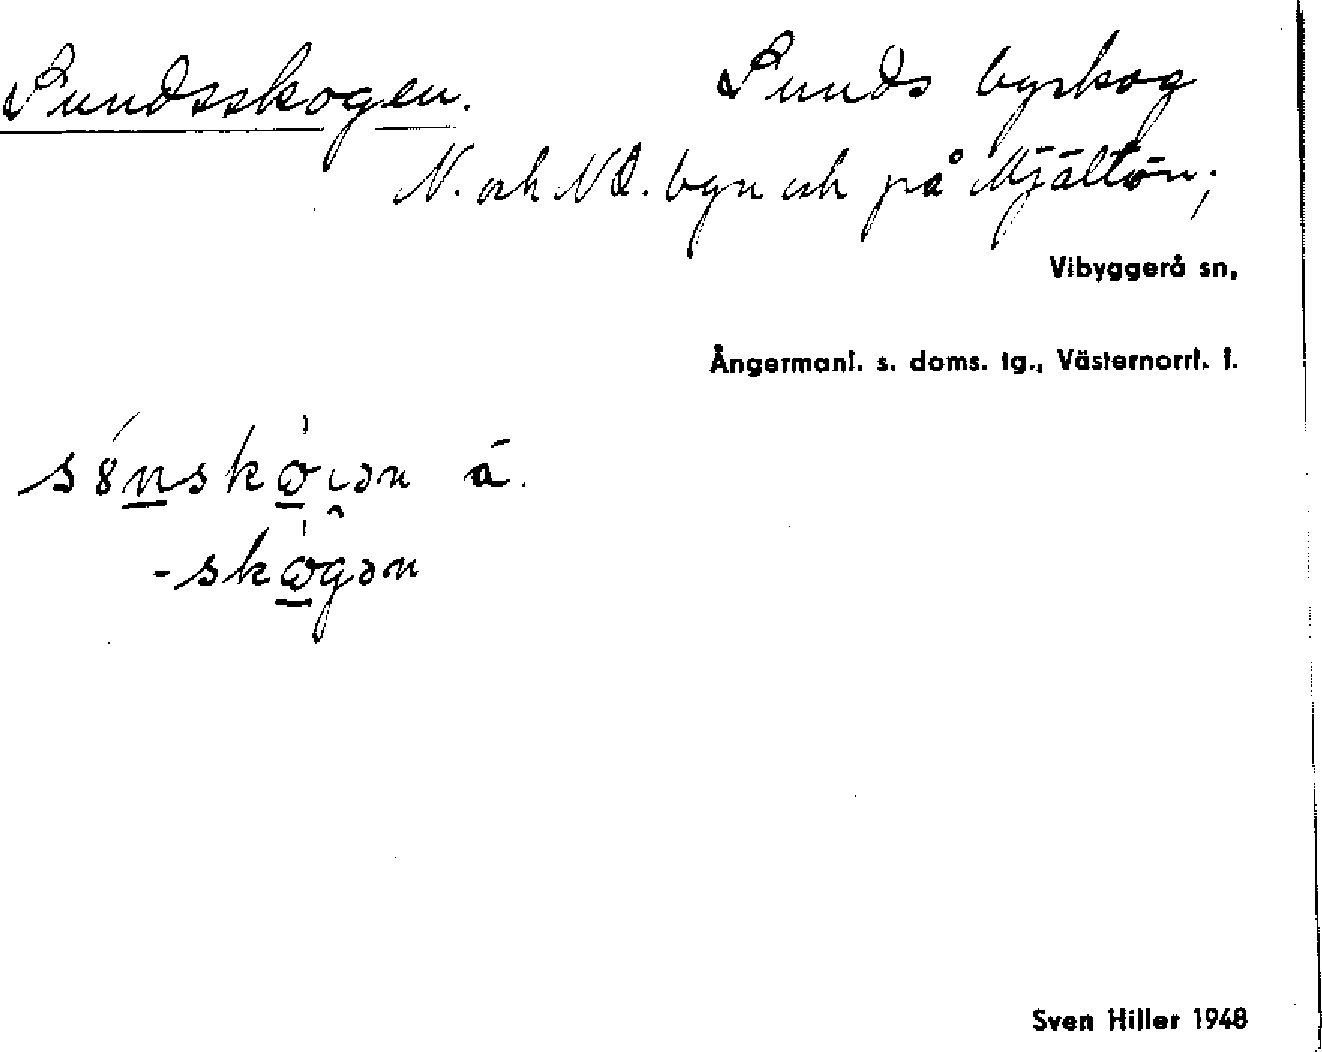 Sundsskogen. Sunds byskog
N. och NÖ. byn och på Mjältön;
Vibyggerå sn,
Ångermanl. s. doms. tg., Västernorrl. l.
á.
Sven Hiller 1948